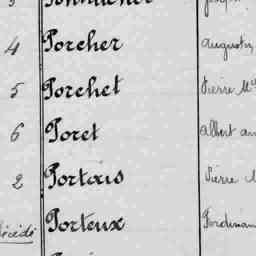 4 Porcher Augustin
5 Porchet Pierre M
6 Poret Albert
2 Portais Pierre M
Décédé Porteux Ferdinan